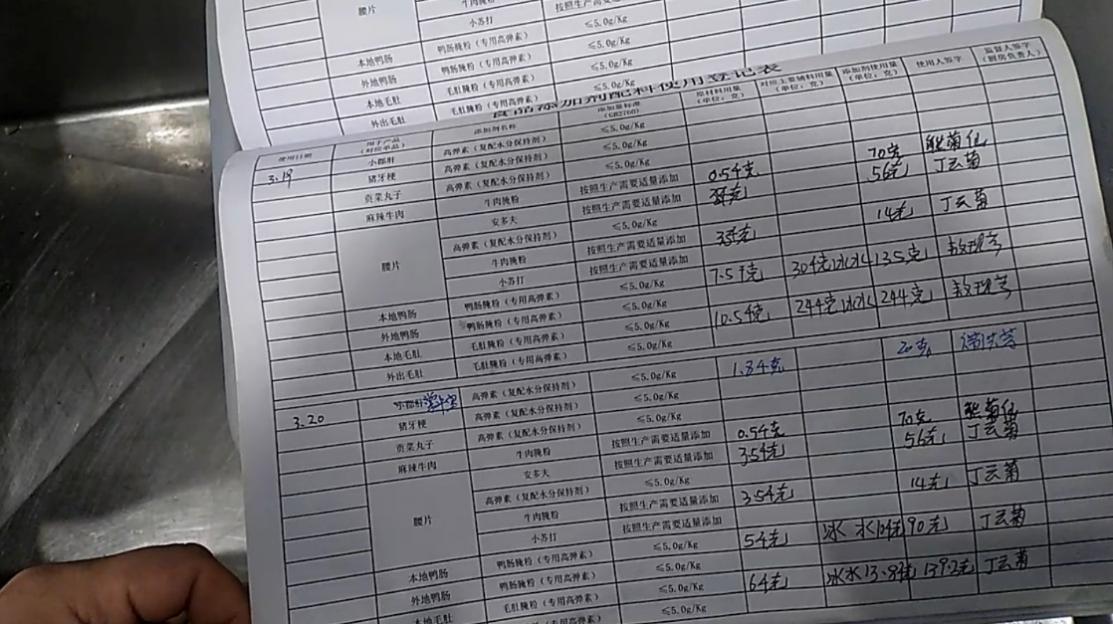 腰片
牛肉腌粉 按照生产需要适量添加
小苏打 ≤5.0g/Kg
本地鸭肠 鸭肠腌粉（专用高弹素） ≤5.0g/Kg
外地鸭肠 鸭肠腌粉（专用高弹素） ≤5.0g/Kg
本地毛肚 毛肚腌粉（专用高弹素） ≤5.0g/Kg
外出毛肚 毛肚腌粉（专用高弹素） ≤5.0g/Kg
食品添加剂配料使用登记表
使用日期 用于产品（对应单品） 添加剂名称 添加量标准（GB2760） 原材料用量（单位：克） 对应主要辅料用量（单位：克） 添加剂使用量（单位：克） 使用人签字 监督人签字（厨房负责人）
3.19 小郡肝 高弹素（复配水分保持剂） ≤5.0g/Kg
猪牙梗 高弹素（复配水分保持剂） ≤5.0g/Kg
贡菜丸子 高弹素（复配水分保持剂） ≤5.0g/Kg
麻辣牛肉 牛肉腌粉 按照生产需要适量添加 70克
腰片 安多夫 按照生产需要适量添加 56克 丁云菊
高弹素（复配水分保持剂） ≤5.0g/Kg
牛肉腌粉 按照生产需要适量添加 14克 丁云菊
小苏打 按照生产需要适量添加
本地鸭肠 鸭肠腌粉（专用高弹素） ≤5.0g/Kg 135克
外地鸭肠 鸭肠腌粉（专用高弹素） ≤5.0g/Kg
本地毛肚 毛肚腌粉（专用高弹素） ≤5.0g/Kg 244克冰水 244克
外出毛肚 毛肚腌粉（专用高弹素） ≤5.0g/Kg
3.20 小郡肝 高弹素（复配水分保持剂） ≤5.0g/Kg 20克
猪牙梗 高弹素（复配水分保持剂） ≤5.0g/Kg
贡菜丸子 高弹素（复配水分保持剂） ≤5.0g/Kg
麻辣牛肉 牛肉腌粉 按照生产需要适量添加 70克
腰片 安多夫 按照生产需要适量添加 56克 丁云菊
高弹素（复配水分保持剂） ≤5.0g/Kg
牛肉腌粉 按照生产需要适量添加 14克 丁云菊
小苏打 按照生产需要适量添加
本地鸭肠 鸭肠腌粉（专用高弹素） ≤5.0g/Kg 90克 丁云菊
外地鸭肠 鸭肠腌粉（专用高弹素） ≤5.0g/Kg
本地毛肚 毛肚腌粉（专用高弹素） ≤5.0g/Kg 冰水 丁云菊
毛肚腌粉（专用高弹素） ≤5.0g/Kg